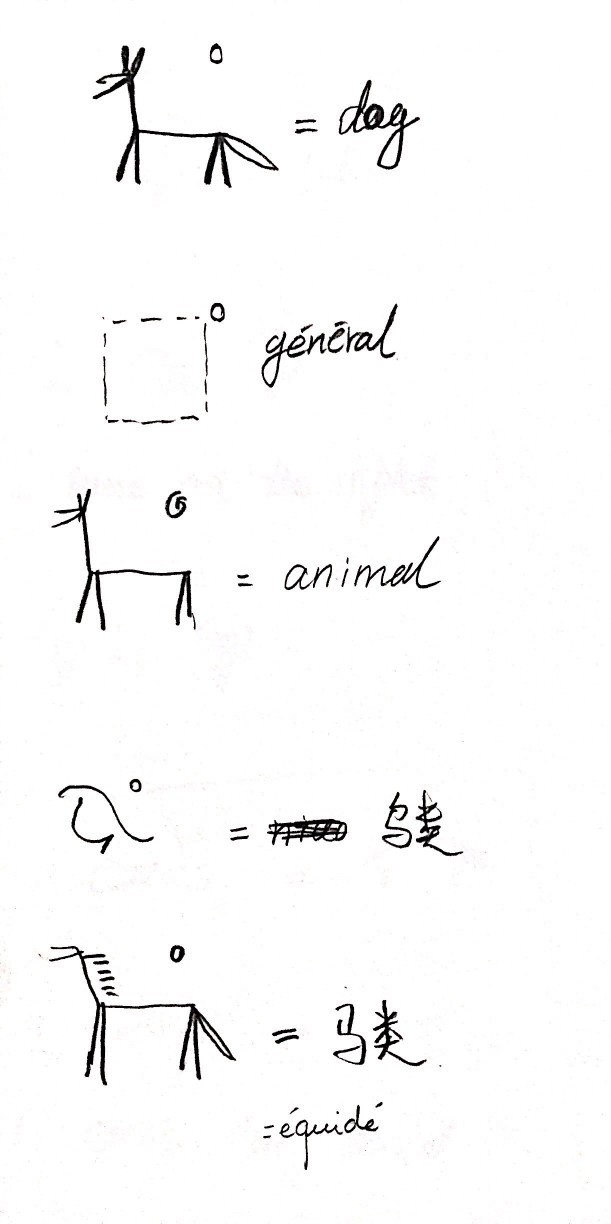 = dog
général
= animal
= 鸟类
= 马类
= équidé